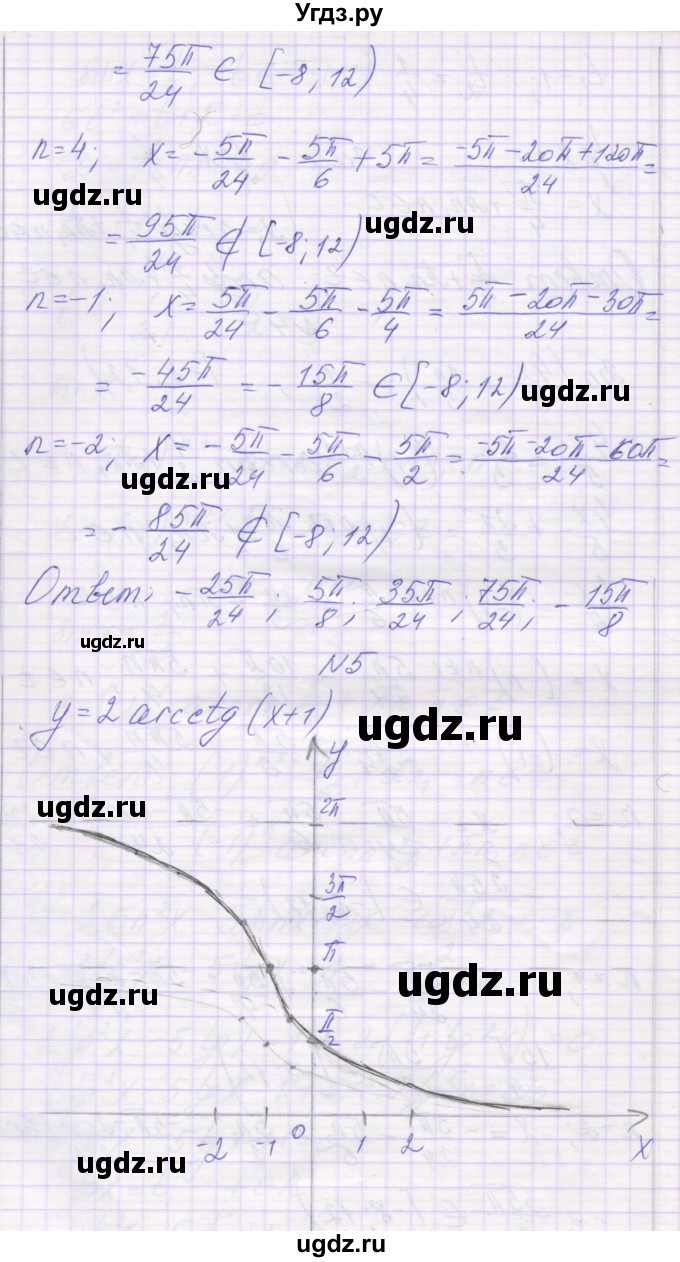 Угдз.ру
= 75π/24 ∈ [-8; 12)
n=4; x= -5π/24 - 5π/6 + 5π = (-5π -20π +120π)/24 =
ugdz.ru
ugdz.ru
= 95π/24 ∉ [-8; 12)
n=-1; x= 5π/24 - 5π/6 - 5π/4 = (5π -20π -30π)/24 =
= -45π/24 = -15π/8 ∈ [-8; 12)
ugdz.ru
n=-2; x= -5π/24 - 5π/6 - 5π/2 = (-5π -20π -60π)/24 =
ugdz.ru
= -85π/24 ∉ [-8; 12)
Ответ; -25π/24; 5π/8; 35π/24; 75π/24; -15π/8
ugdz.ru
N5
y = 2 arcctg (x+1)
ugdz.ru
y
2π
ugdz.ru
3π/2
π
ugdz.ru
ugdz.ru
π/2
-2 -1 0 1 2 x
ugdz.ru
ugdz.ru